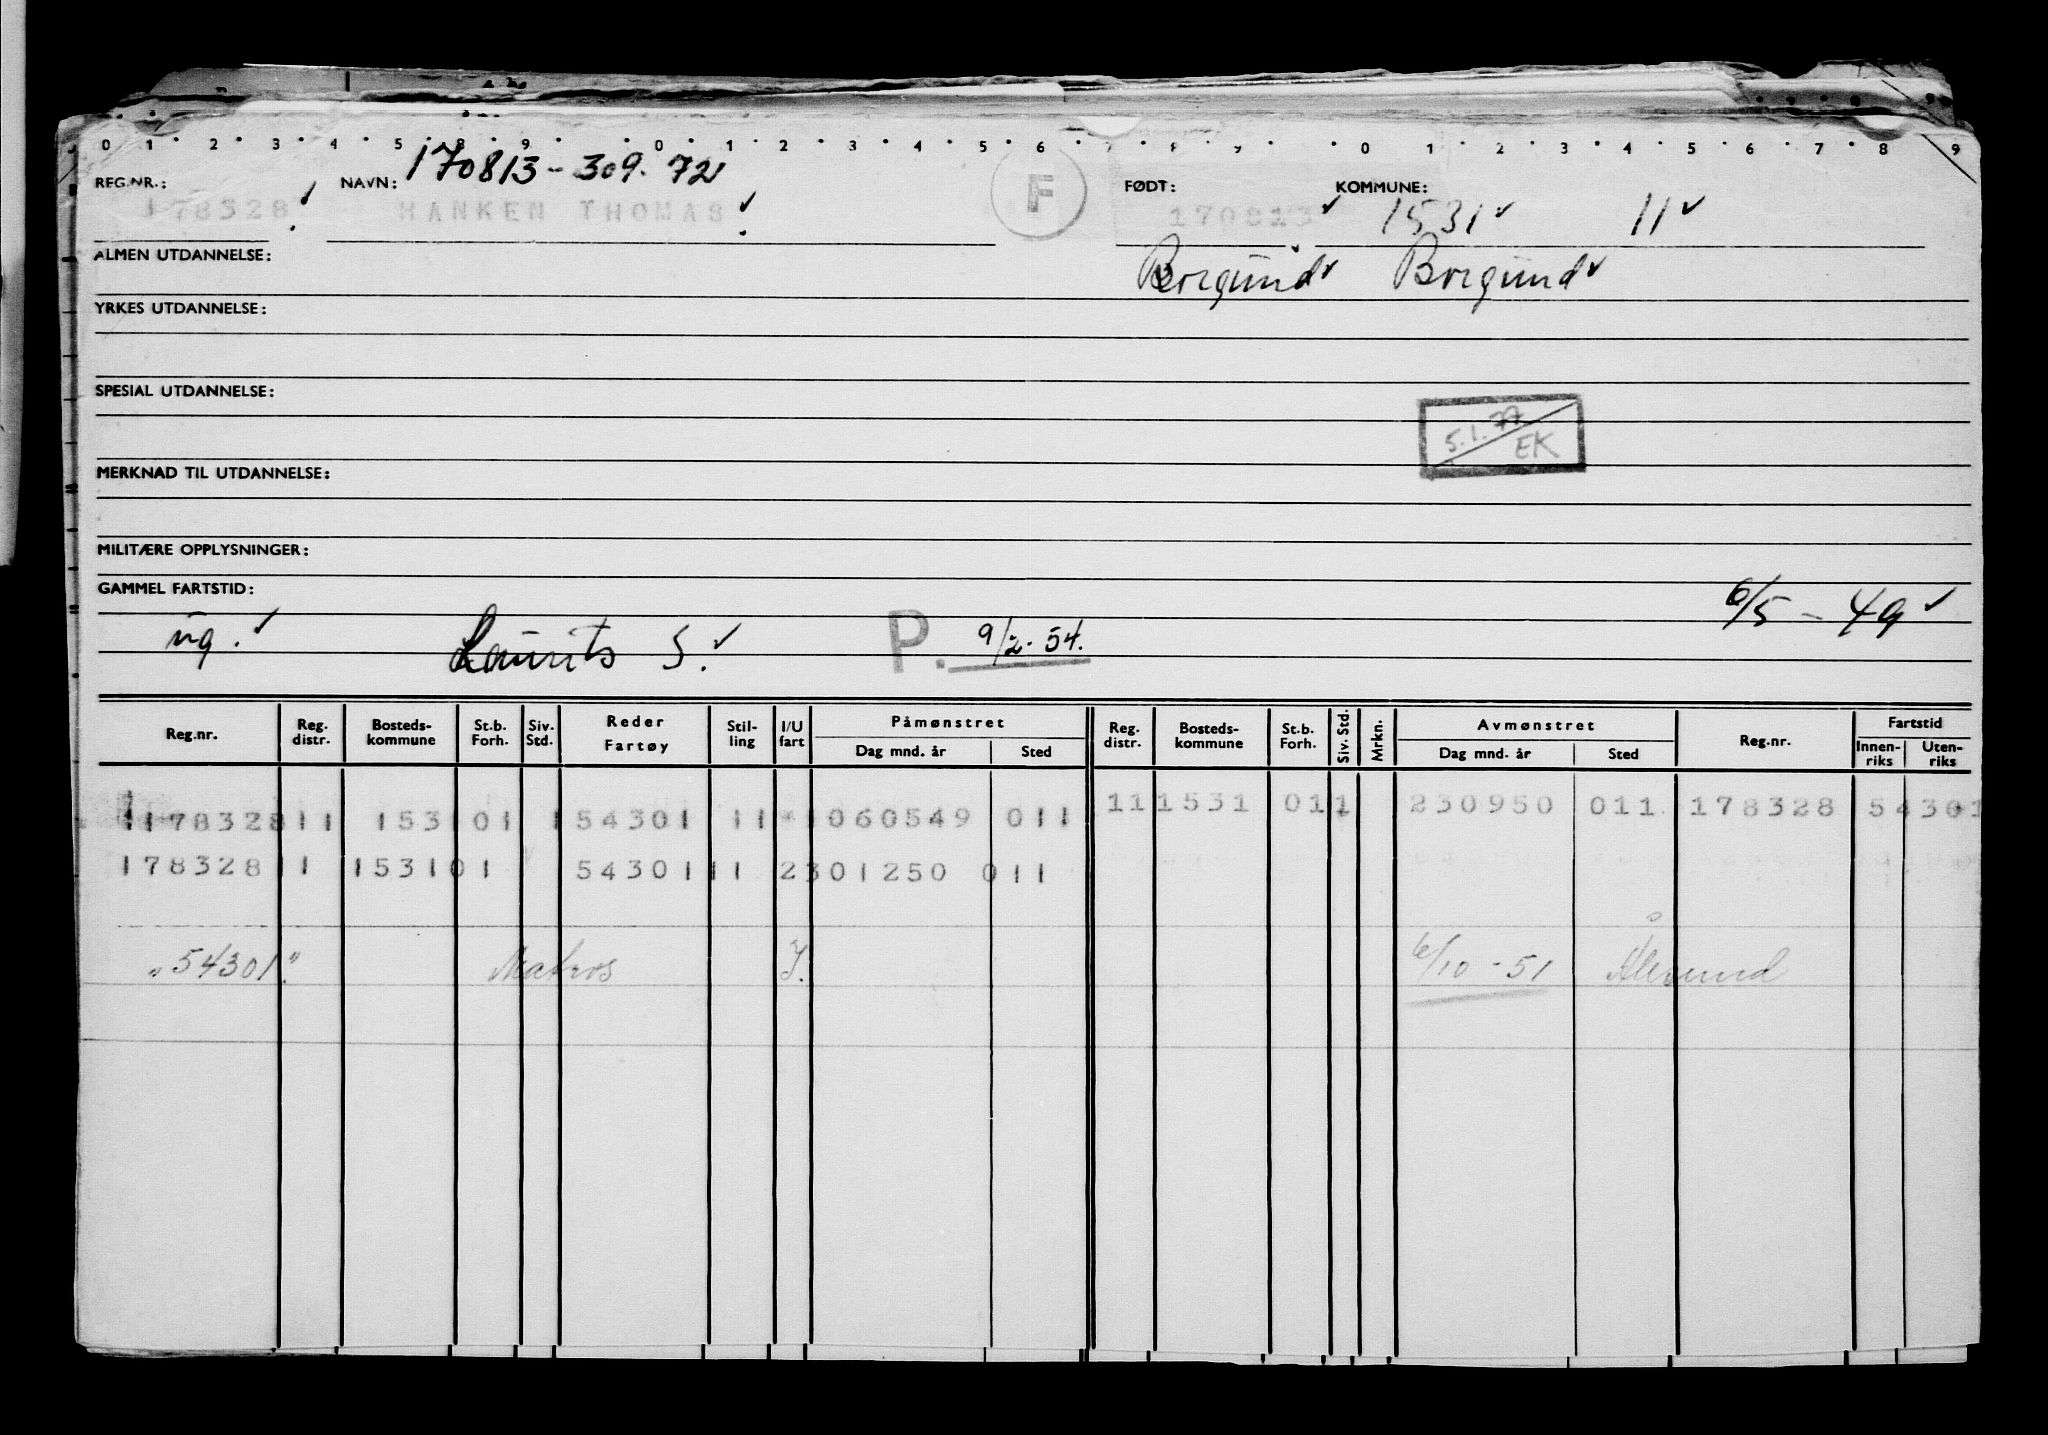 0 1 2 3 4 5 8 9 0 1 2 3 4 5 6 7 8 9 0 1 2 3 4 5 6 7 8 9
170813-309.72
REG.NR.: NAVN: F FØDT: KOMMUNE:
178328 MANKEN THOMAS 170813 1531 11
ALMEN UTDANNELSE: Borgund Borgund
YRKES UTDANNELSE:
SPESIAL UTDANNELSE:
5.1.77 EK
MERKNAD TIL UTDANNELSE:
MILITÆRE OPPLYSNINGER:
GAMMEL FARTSTID: 6/5 - 49
ug. Laurits S. P. 9/2-54.
Reg.nr. Reg. distr. Bosteds-kommune St.b. Forh. Siv. Std. Reder Fartøy Stil-ling I/U fart Påmønstret Dag mnd. år Sted Reg. distr. Bosteds-kommune St.b. Forh. Siv. Std. Mrkn. Avmønstret Dag mnd. år Sted Reg.nr. Fartstid Innen-riks Uten-riks
1178328 11 153101 154301 11 1060549 011 11 1531 011 230950 011 178328 54301
178328 11 153101 54301 11 2301250 011
"54301" Matros I. 6/10-51 Ålesund